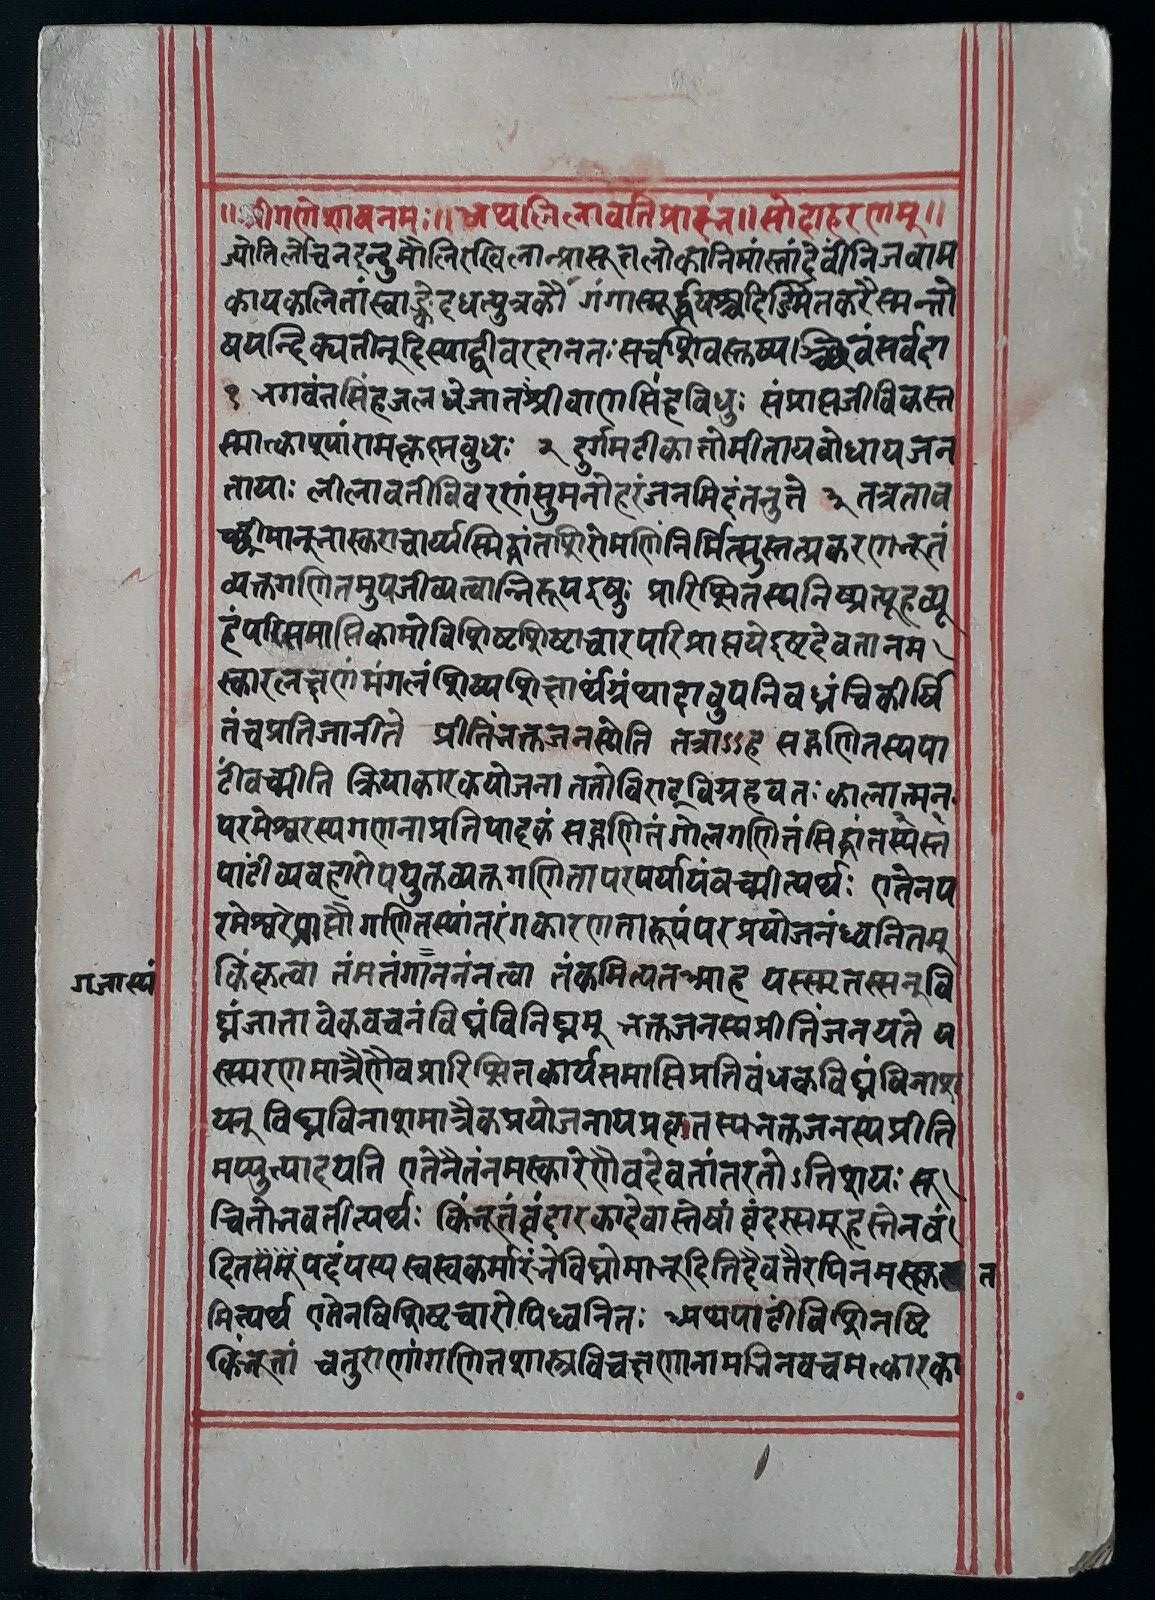 ॥श्रीगणेशायनमः॥ अथलिलावतिप्रारंभ॥ सोदाहरणम्॥
ज्योतिलैचिनइन्दुमौलिरखिलान्प्रासूत्तलोकानिमांस्तांदेवींनिजवाम
कायकलितांस्वाङ्केदधत्पुत्रकौ गंगास्फूर्द्धपश्च
१ भगवंनसिंहजलधेजातश्रीवाणसिंहविधुः संप्राप्तजीविकस्त
स्मात्कापुषांरामकृष्णबुधः २ दुर्गमटीकातोमीतायबोधायजन
तायाः लीलावतीविवरणंसुमनोहरंजनमिदंतनुते ३ तत्रताव
च्छ्रीमान्भास्कराचार्य्यस्मिद्धांतशिरोमणिंनिर्मित्सुस्तत्प्रकरणभूतं
व्यक्तगणितमुपजीव्यत्वान्निरूपइषुः प्रारिप्सितस्यनिष्प्रत्यूहव्यू
हंपरिसमाप्तिकामोविशिष्टशिष्टाचारपरिप्राप्तयेइष्टदेवतानम
स्कारलक्षणंमंगलंशिष्यशिक्षार्थंग्रंथादावुपनिबध्नंचिकीर्षि
तंचप्रतिजानीते प्रीतिंभक्तजनस्येति तत्राऽऽह सद्गणितस्यपा
टींवच्मीति क्रियाकारकयोजना ततोविराट्विग्रहवतः कालात्मन्
परमेश्वरस्यगणनाप्रतिपादकं सद्गणितंगोलगणितंसिद्धांतस्यस्त
पाटींव्यवहारोपयुक्तव्यक्तगणितापरपर्यायंवच्मीत्यर्थः एतेनप
रमेश्वरेप्राप्तौगणितस्यांतरंगकारणतारूपंपरप्रयोजनंध्वनितम्
किंकृत्वा तंमतंगाननंनत्वा तंकमित्यतआह यस्स्मृतस्सन्वि
गजास्यं
घ्नंजातावेकवचनंविघ्नंविनिघ्नम् भक्तजनस्यप्रीतिंजनयते य
स्स्मरणमात्रैणैवप्रारिप्सितकार्यसमाप्तिप्रतिबंधकविघ्नंविनाश
यन् विघ्नविनाशमात्रैकप्रयोजनायप्रकृतस्यभक्तजनस्यप्रीति
मप्युत्पादयति एतेनैतंनमस्कारेणैवदेवतांतरतोऽतिशयः सू
चितोभवतीत्यर्थः किंभूतंवृंदारकादेवास्तेषांवृंदस्समूहस्तेनवं
दितं पदंयस्य स्वस्वकर्मारंभेविघ्नोमाभूदितिदैवतैरपिनमस्कृत
मित्यर्थ एतेनविशिष्टचारोपिध्वनितः अथपाटींविशिनष्टि
किंभूतां चतुराणांगणितशास्त्रविचक्षणानामभिनवचमत्कारका